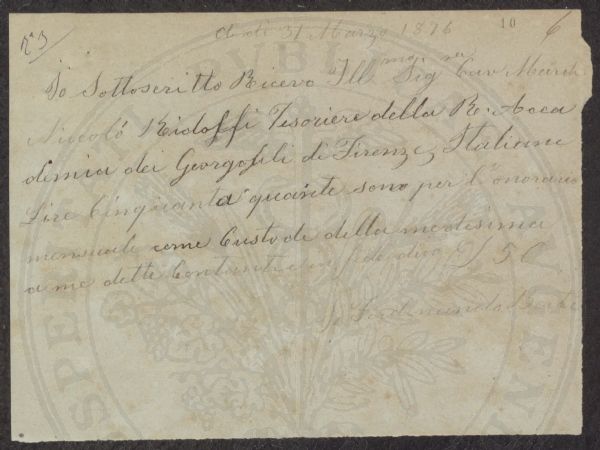 N° 3
A dì 31 Marzo 1876
10
6
Io Sottoscritto Ricevo Ill. Sig Cav March
Niccolò Ridolfi Tesoriere della R. Acca
demia dei Georgofili di Firenze, Italiane
Lire Cinquanta quante sono per l'onorario
mensuale come Custode della medesima
a me dette Contanti in fede dico £ 50
Io Ferdinando
PUBLICAE
PROSPERITATI
AUGENDAE